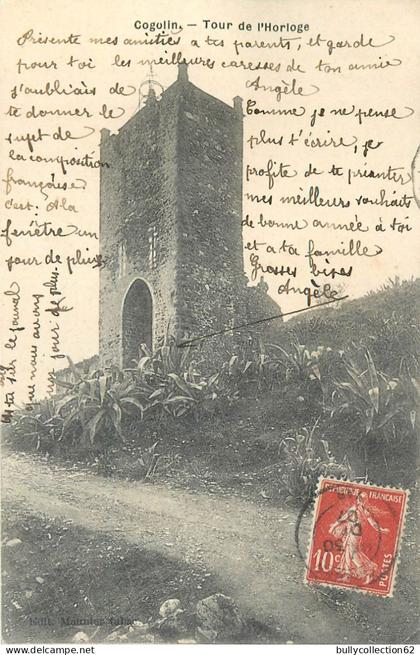 Cogolin. — Tour de l'Horloge
Présente mes amitiés a tes parents, et garde
pour toi les meilleures caresses de ton amie
Angèle
j'oubliais de
te donner le
sujet de
la composition
française
c'est. A la
fenêtre un
jour de pluie
Comme je ne pense
plus t'écrire, je
profite de te présenter
mes meilleurs souhaits
de bonne année à toi
et a ta famille
Grosses bises
Angèle
que nous avons
jour de plus.
RÉPUBLIQUE FRANÇAISE
10c
POSTES
Edit. Meunier
collection@bullycollector62.com